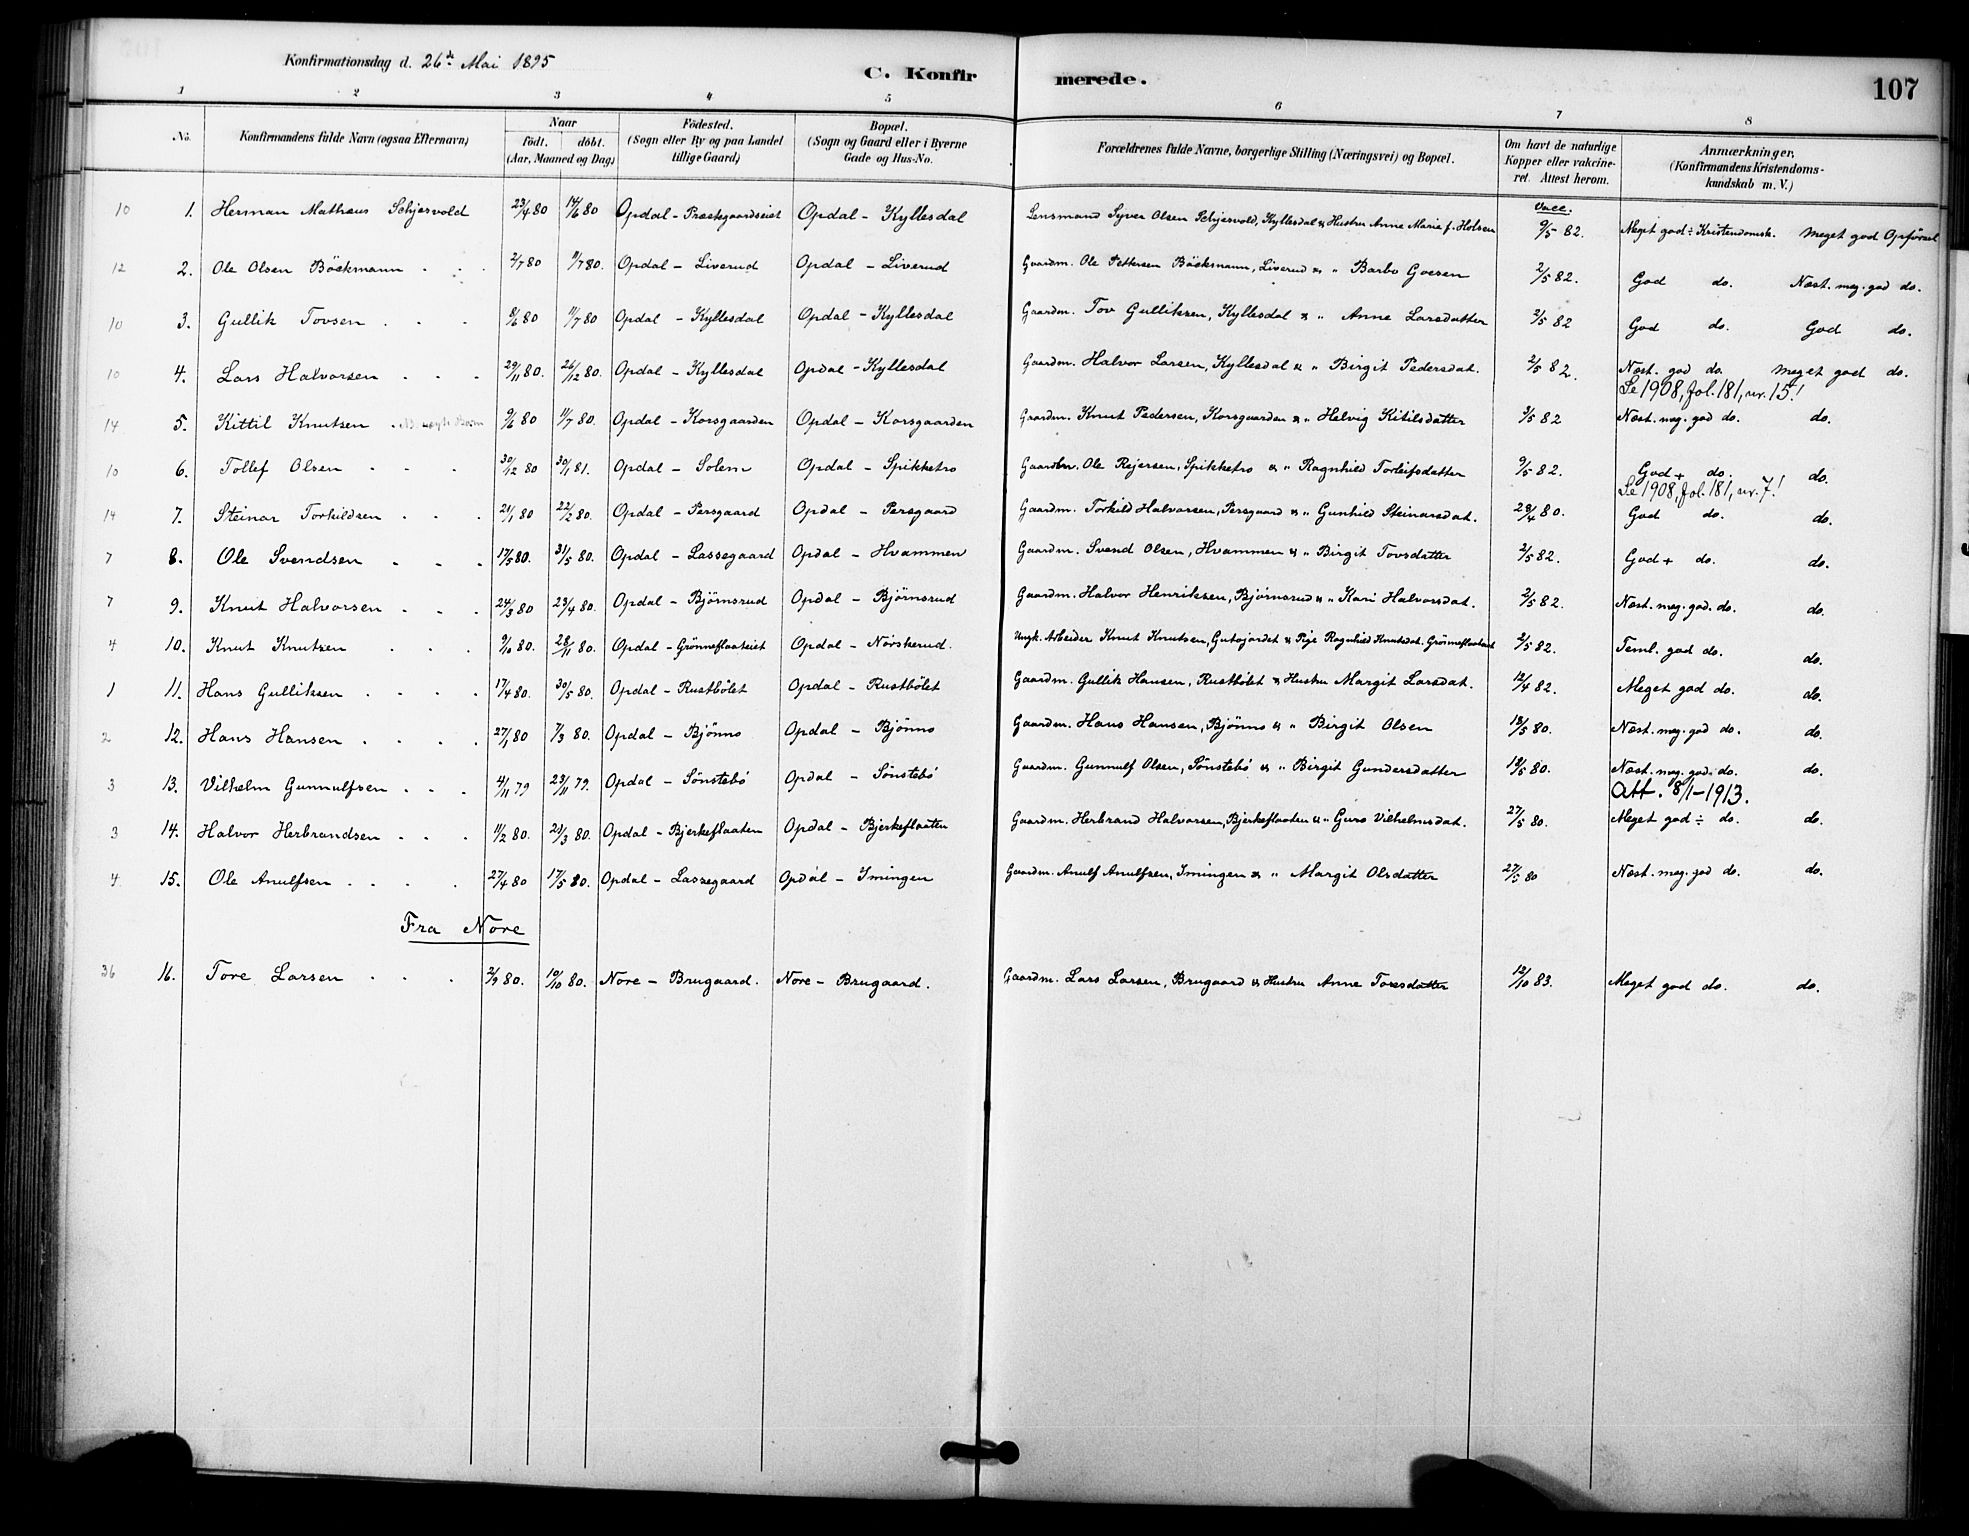 Konfirmationsdag d. 26de Mai 1895
C. Konfirmerede.
107
1 2 3 4 5 6 7 8
No.
Konfirmandens fulde Navn (ogsaa Efternavn)
Naar
födt. döbt.
(Aar, Maaned og Dag)
Födested.
(Sogn eller By og paa Landet tillige Gaard)
Bopæl.
(Sogn og Gaard eller i Byerne Gade og Hus-No.
Forældrenes fulde Navne, borgerlige Stilling (Næringsvei) og Bopæl.
Om havt de naturlige Kopper eller vakcineret. Attest herom.
Anmærkninger.
(Konfirmandens Kristendomskundskab m. V.)
Vacc.
10 1. Herman Mathæus Schjærvold 23/4 80 14/6 80 Opdal - Præstegaardseiet Opdal - Kyllesdal Lensmand Syver Olsen Schjærvold, Kyllesdal & Hustru Anne Marie f. Holsen 9/5 82. Meget god ÷ Kristendomsk. Meget god Opförsel
12 2. Ole Olsen Böckmann 2/7 80 11/7 80. Opdal - Liverud Opdal - Liverud Gaardm. Ole Pettersen Böckmann, Liverud & " Barbo Goesen 2/5 82. God do. Næst. meg. god do.
10 3. Gullik Tovsen 8/6 80 11/7 80 Opdal - Kyllesdal Opdal - Kyllesdal Gaardm. Tov Gulliksen, Kyllesdal & " Anne Larsdatter 2/5 82 God do. God do.
10 4. Lars Halvorsen 29/11 80. 26/12 80. Opdal - Kyllesdal Opdal - Kyllesdal Gaardm. Halvor Larsen, Kyllesdal & " Birgit Pedersdat. 2/5 82. Næst. god do. Meget god do.
Se 1908, fol. 181, nr. 15!
14 5. Kittil Knutsen 9/6 80 11/7 80. Opdal - Korsgaarden Opdal - Korsgaarden Gaardm. Knut Pedersen, Korsgaarden & " Helvig Kitilsdatter 2/5 82 Næst. meg. god do. do.
10 6. Tollef Olsen 30/12 80 30/1 81. Opdal - Solem Opdal - Spikketro Ole Reiersen, Spikketro & " Ragnhild Torleifsdatter 9/5 82. God + do. do.
Se 1908, fol. 181, nr. 7!
14 7. Steinar Torkildsen 21/1 80 22/2 80. Opdal - Persgaard Opdal - Persgaard Gaardm. Torkild Halvorsen, Persgaard & " Gunhild Steinarsdat. 29/4 80. God do. do.
7 8. Ole Svendsen 17/5 80. 31/5 80. Opdal - Lassegaard Opdal - Hvammen Gaardm. Svend Olsen, Hvammen & " Birgit Tovsdatter 2/5 82. God + do. do.
7 9. Knut Halvorsen 24/3 80 23/4 80. Opdal - Bjørnsrud Opdal - Bjørnsrud Gaardm. Halvor Henriksen, Bjørnsrud & " Kari Halvorsdat. 2/5 82. Næst. meg. god. do. do.
4 10. Knut Knutsen 9/10 80. 28/11 80. Opdal - Grönneflaateiet Opdal - Nörsterud. Ungk. Arbeider Knut Knutsen, Gutajordet & Pige Ragnhild Knutsdat. Grönneflaateiet 2/5 82. Teml. god do. do.
1 11. Hans Gulliksen 17/4 80. 30/5 80. Opdal - Rustbölet Opdal - Rustbölet Gaardm. Gullik Hansen, Rustbölet & Hustru Margit Larsdat. 12/4 82. Meget god do. do.
2 12. Hans Hansen 27/1 80 7/3 80. Opdal - Bjönno Opdal - Bjönno Gaardm. Hans Hansen, Bjönno & " Birgit Olsen 18/5 80. Næst. meg. god do. do.
3 13. Vilhelm Gunnulfsen 4/11 79 23/11 79. Opdal - Sönstebö Opdal - Sönstebö Gaardm. Gunnulf Olsen, Sönstebö & " Birgit Gundersdatter 18/5 80. Næst. meg. god. do. do.
Att. 8/1-1913.
3 14. Halvor Herbrandsen 11/2 80. 21/3 80. Opdal - Bjerkeflaaten Opdal - Bjerkeflaaten Gaardm. Herbrand Halvorsen, Bjerkeflaaten & " Guro Vilhelmsdat. 27/5 80. Meget god ÷ do. do.
4 15. Ole Anulfsen 27/4 80 17/5 80. Opdal - Lassegaard Opdal - Imingen Gaardm. Anulf Anulfsen, Imingen & " Margit Olsdatter 27/5 80 Næst. meg. god do. do.
Fra Nore
36 16. Tore Larsen 2/9 80. 10/10 80. Nore - Brugaard. Nore - Brugaard. Gaardm. Lars Larsen, Brugaard & Hustru Anne Toresdatter 12/10 83. Meget god do. do.